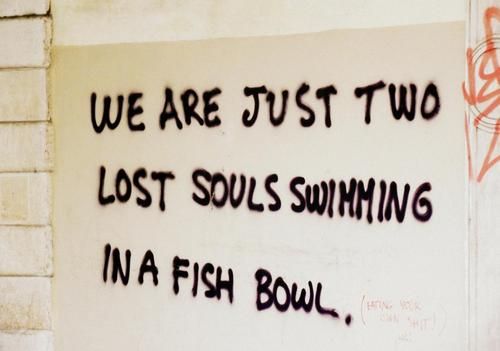 WE ARE JUST TWO
LOST SOULS SWIMMING
IN A FISH BOWL.
(EATING YOUR
OWN SHIT!)